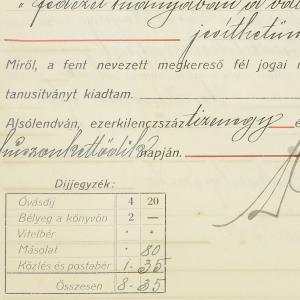 " fedezet hiányában a vál
jesíthetün
Miről, a fent nevezett megkereső fél jogai m
tanusítványt kiadtam.
Alsólendván, ezerkilenczszáz tizenegy é
huszonkettődik napján.
Díjjegyzék:
Óvásdíj 4 20
Bélyeg a könyvön 2 —
Vitelbér • •
Másolat • 80
Közlés és postabér 1 · 35
Összesen 8 · 35